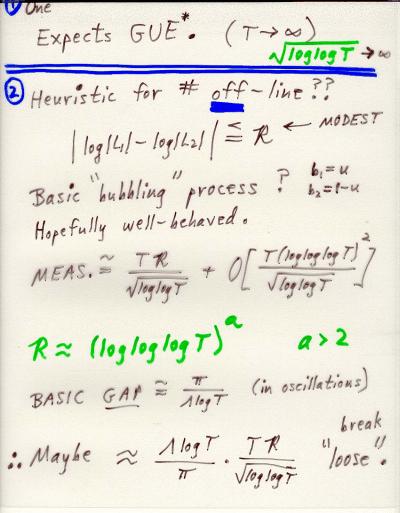 ① One
Expects GUE*. (T→∞)
√loglogT → ∞
② Heuristic for # off-line ??
|log|L₁| - log|L₂|| ≤ R ← MODEST
Basic "bubbling" process ? b₁=u
b₂=1-u
Hopefully well-behaved.
MEAS. ≅ TR/√loglogT + O[T(logloglogT)²/√loglogT]
R ≈ (logloglogT)^a a>2
BASIC GAP ≅ π/ΛlogT (in oscillations)
break
∴ Maybe ≈ ΛlogT/π · TR/√loglogT "loose".